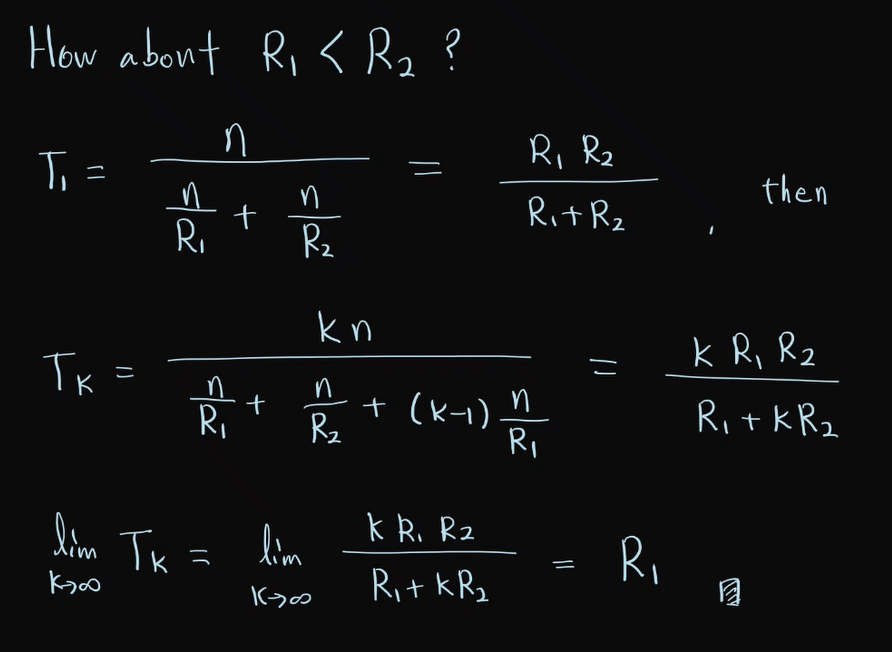 How about R₁ < R₂ ?
T₁ = n / (n/R₁ + n/R₂) = R₁ R₂ / (R₁+R₂) , then
T_K = kn / (n/R₁ + n/R₂ + (k-1) n/R₁) = k R₁ R₂ / (R₁ + kR₂)
lim_{K→∞} T_K = lim_{K→∞} k R₁ R₂ / (R₁ + kR₂) = R₁